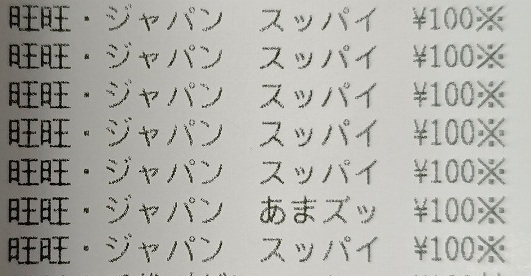 旺旺・ジャパン スッパイ ¥100※
旺旺・ジャパン スッパイ ¥100※
旺旺・ジャパン スッパイ ¥100※
旺旺・ジャパン スッパイ ¥100※
旺旺・ジャパン スッパイ ¥100※
旺旺・ジャパン あまズッ ¥100※
旺旺・ジャパン スッパイ ¥100※